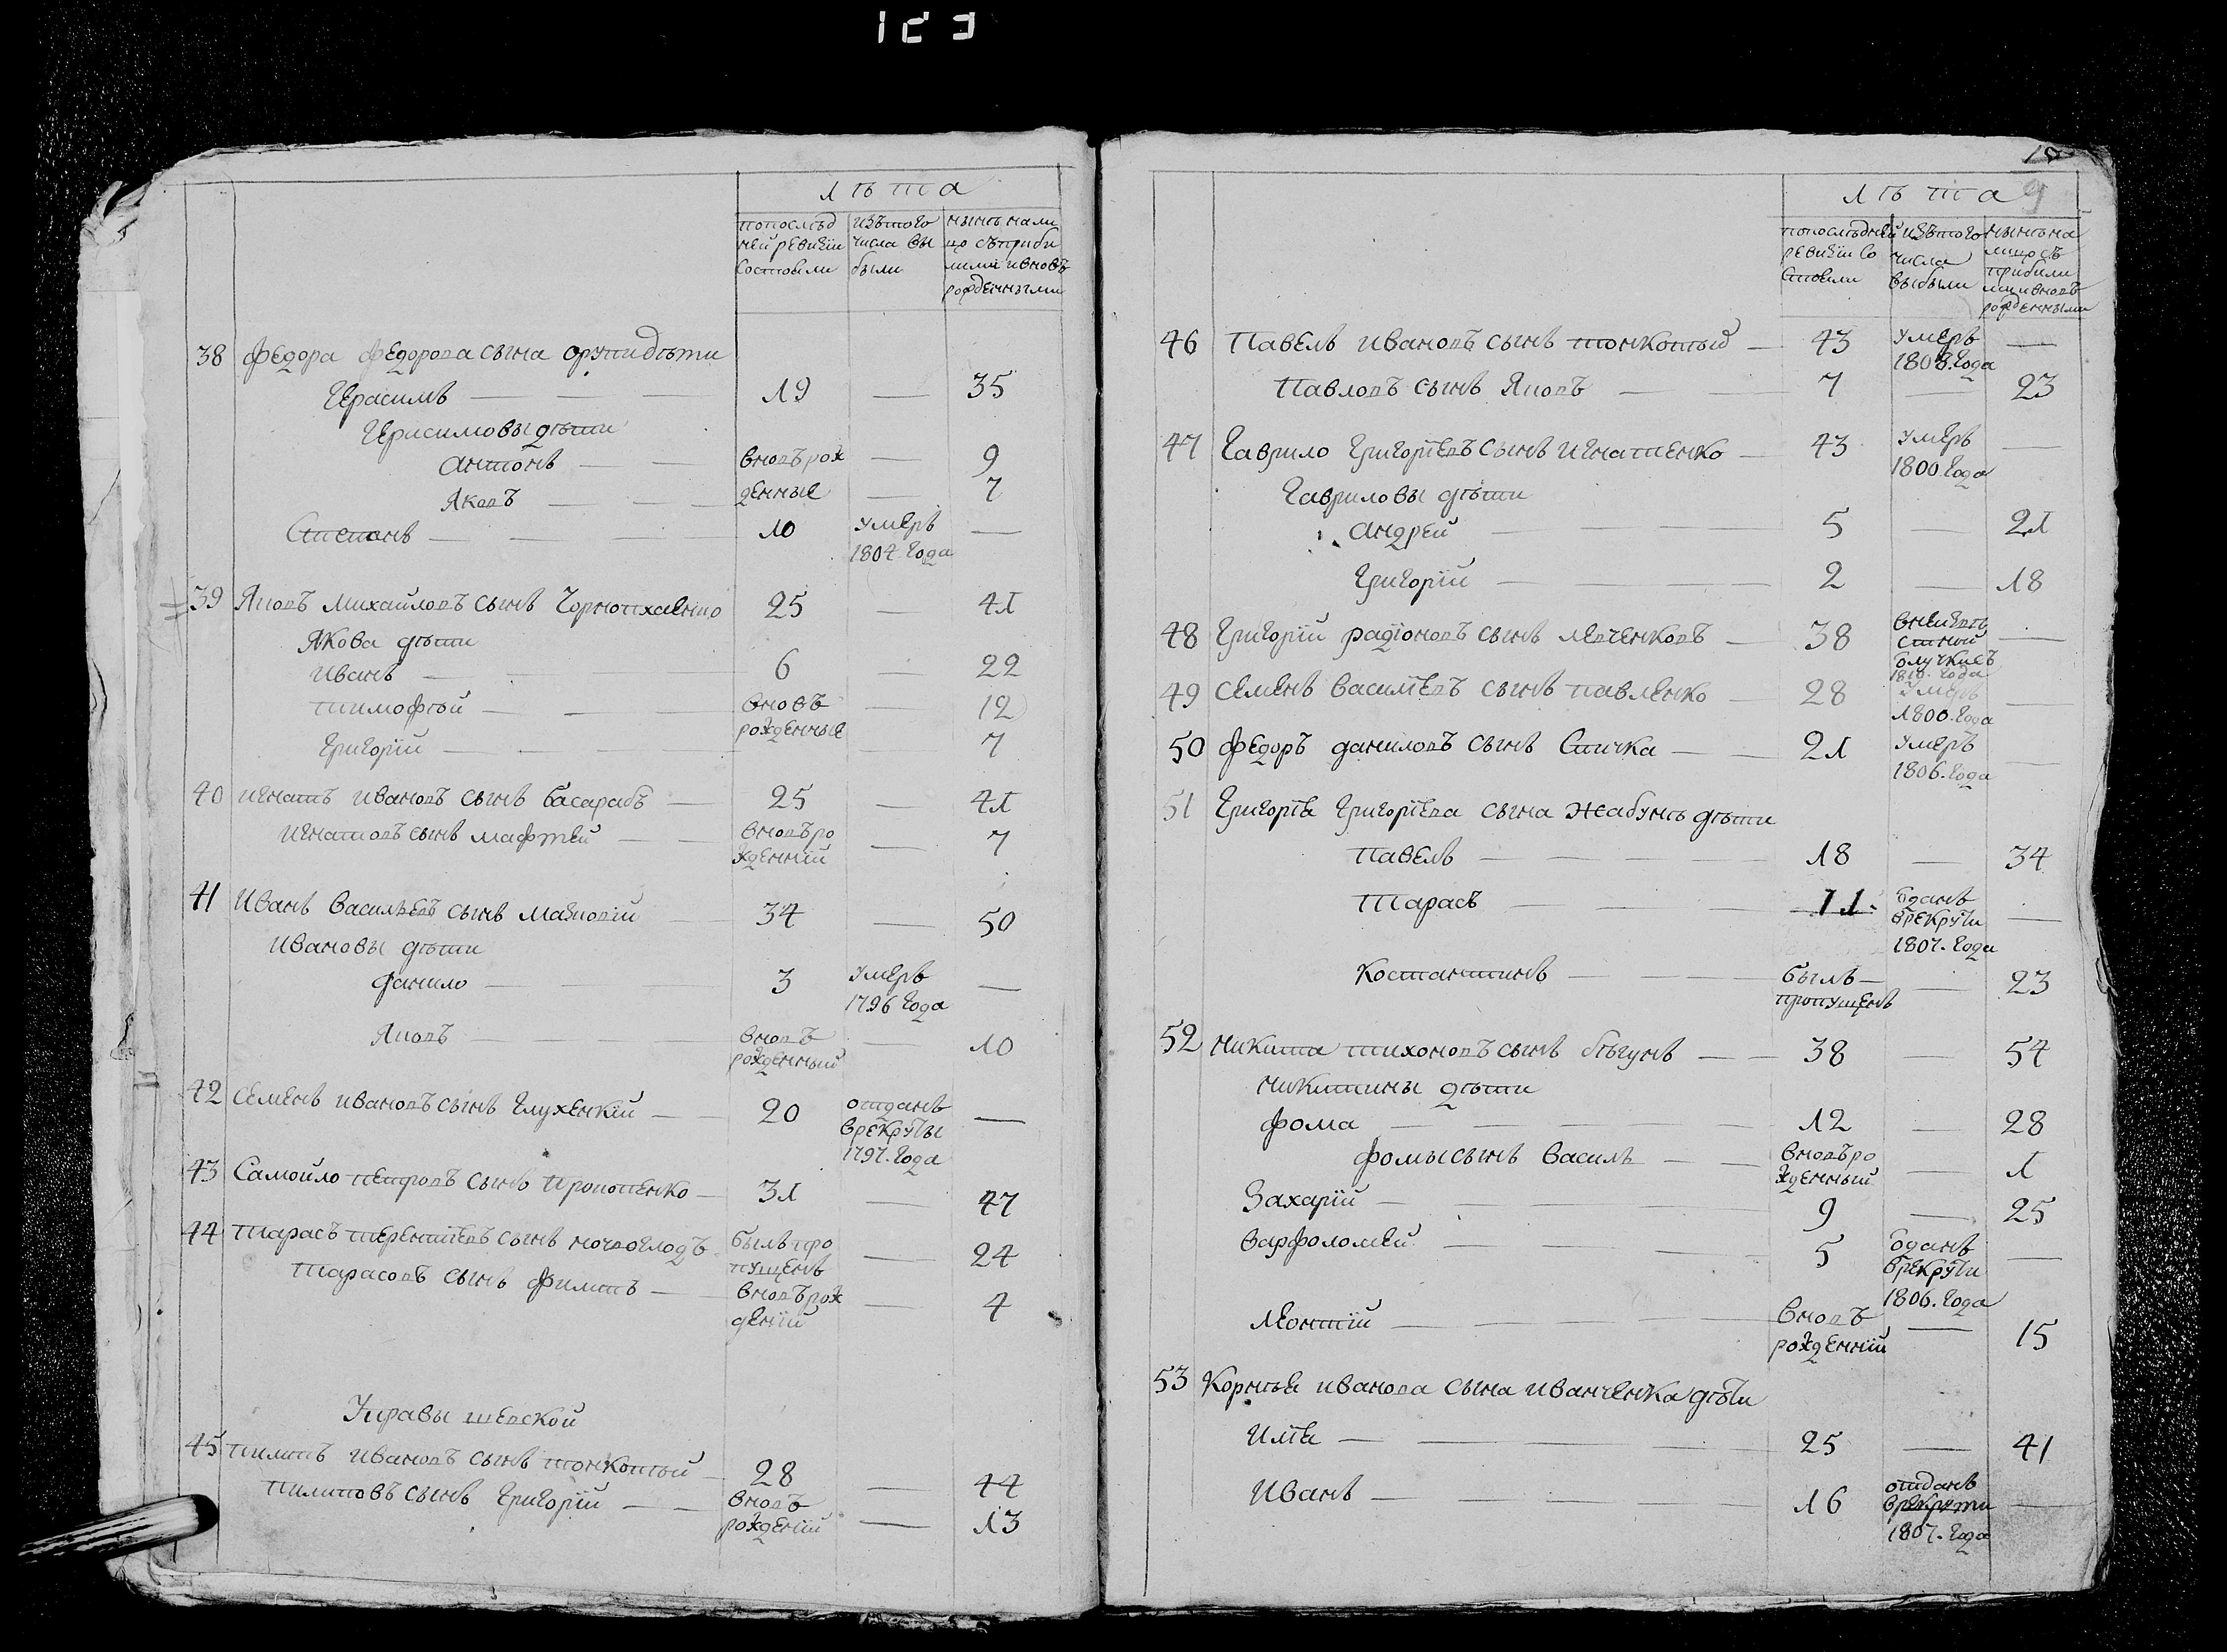 лѣта
попослѣд изътого нынѣ нали
ней ревизіи числа вы цо съприби
Состояли были лими ивновъ
рожденными
38 Федора Федорова сына дѣти
Герасимъ — 19 — 35
Герасимовы дѣти
Антонъ — вновърож — 9
Яковъ — денные — 7
Степанъ — 10 Умеръ —
1804. Года
39 Яковъ Михайловъ сынъ — 25 — 41
Якова дѣти
Иванъ — 6 — 22
Тимофѣй — вновъ — 12
рожденные
Григорій — 7
40 Игнатъ Ивановъ сынъ Басарабъ — 25 — 41
Игнатовъ сынъ Мафтей — вновъро — 7
жденній
41 Иванъ Васильевъ сынъ — 34 — 50
Ивановы дѣти
Данило — 3 Умеръ —
1796 Года
Яковъ — вновъ — 10
рожденный
42 Семенъ Ивановъ сынъ Глухенкій — 20 отданъ —
врекруты
1797. Года
43 Самойло Петровъ сынъ Прокопенко — 31 — 47
44 Тарасъ Терентіевъ сынъ — былъ про — 24
пущенъ
Тарасовъ сынъ Филипъ — вновърож — 4
деній
Управы шевской
45 Пилипъ Ивановъ сынъ Тонконогій — 28 — 44
Пилиповъ сынъ Григорій — вновъ — 13
рожденій
10
лѣта 9
попослѣдней изътого нынѣ на
ревизіи со числа лицо съ
стояли выбыли прибили
ми ивновъ
рожденными
46 Павелъ Ивановъ сынъ — 43 Умеръ —
1808. Года
Павловъ сынъ Яковъ — 7 — 23
47 Гаврило Григоріевъ сынъ Игнатенко — 43 Умеръ —
1800. Года
Гавриловы дѣти
Андрей — 5 — 21
Григорій — 2 — 18
48 Григорій Радіоновъ сынъ Левченковъ — 38 —
49 Семенъ Василіевъ сынъ Павленко — 28 Умеръ —
1800. Года
50 Федоръ Даниловъ сынъ Спичка — 21 Умеръ —
1806. Года
51 Григорія Григоріева сына дѣти
Павелъ — 18 — 34
Тарасъ — 11. Оданъ —
врекрути
1807. Года
Костантинъ — былъ — 23
пропущенъ
52 Никита Тихоновъ сынъ Бѣгунъ — 38 — 54
Никитины дѣти
Фома — 12 — 28
Фомы сынъ Василь — вновъро — 1
жденный
Захарій — 9 — 25
Варфоломей — 5 Оданъ —
врекрути
1806. Года
Леонтій — вновъ — 15
рожденній
53 Корнѣя Иванова сына Иванченка дѣти
Илія — 25 — 41
Иванъ — 16 отданъ —
врекрути
1807. Года